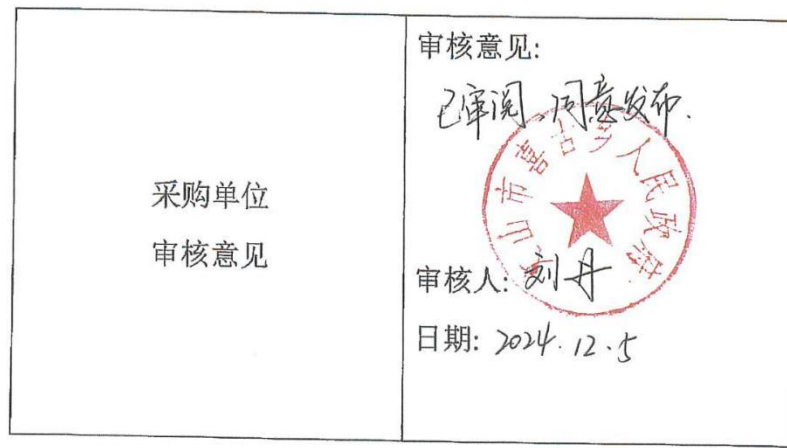 采购单位
审核意见
审核意见:
已审阅、同意发布.
审核人: 刘丹
日期: 2024.12.5
山市喜古乡人民政府